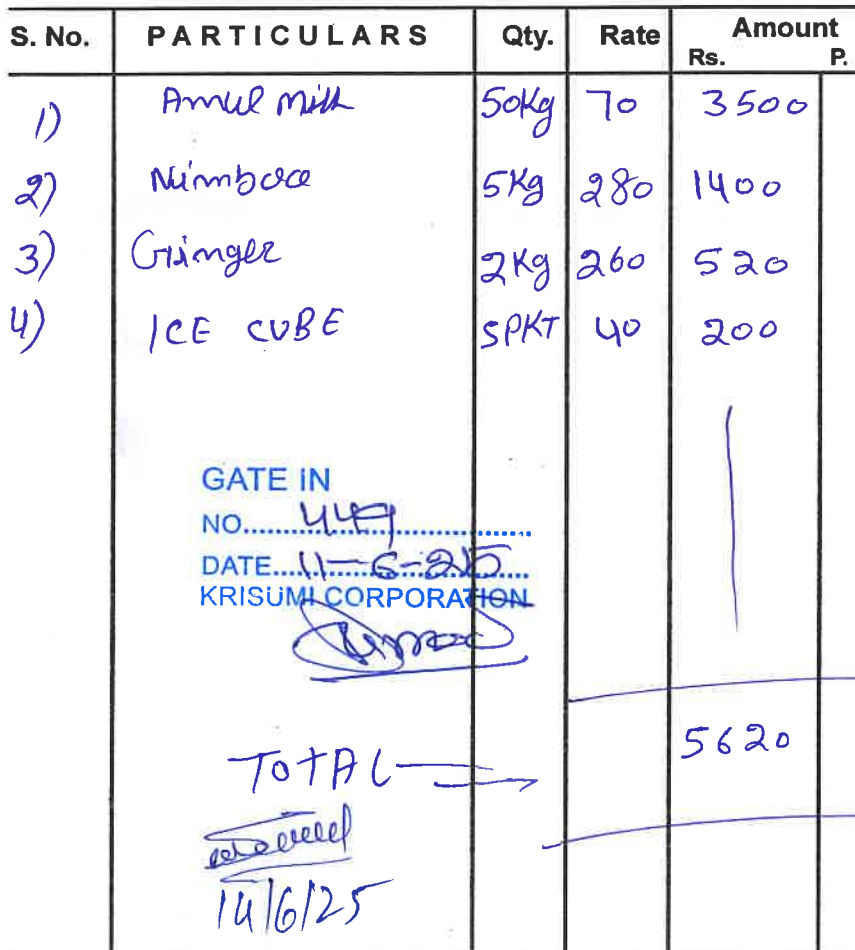 S. No. PARTICULARS Qty. Rate Amount
Rs. P.
1) Amul Milk 50Kg 70 3500
2) Nimboo 5Kg 280 1400
3) Ginger 2Kg 260 520
4) ICE CUBE 5PKT 40 200
GATE IN
NO. 449
DATE 11-6-25
KRISUMI CORPORATION
TOTAL 5620
14/6/25